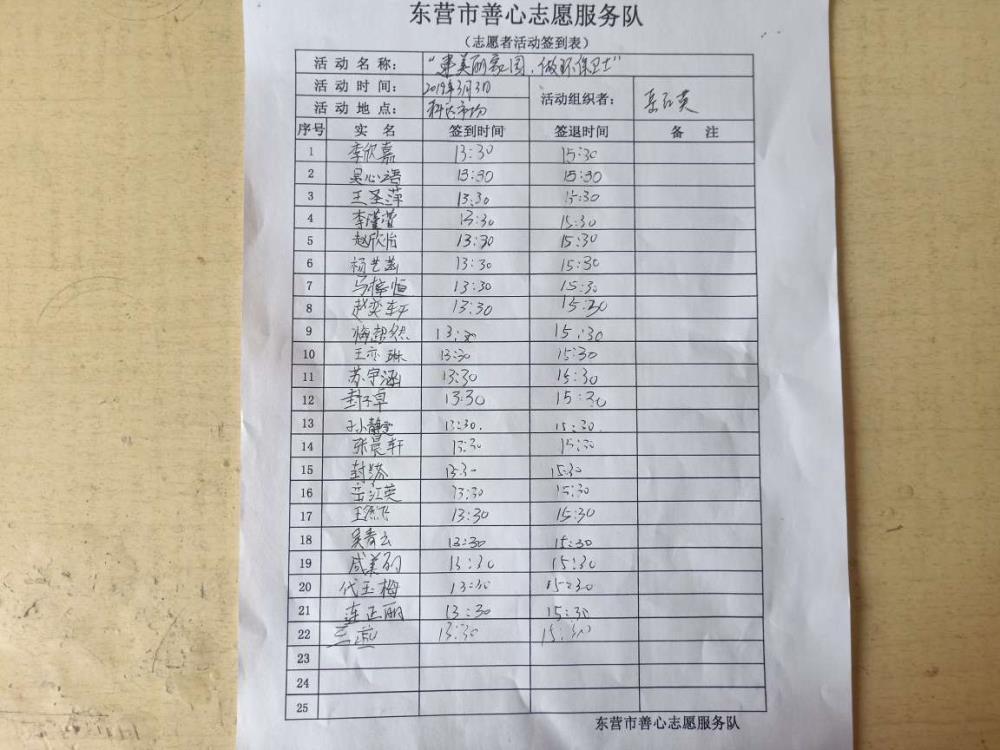 东营市善心志愿服务队
（志愿者活动签到表）
活动名称： “ 美丽家园，做环保卫士”
活动时间： 2019年3月3日 活动组织者：
活动地点： 科达市场
序号 实名 签到时间 签退时间 备注
1 李欣嘉 13:30 15:30
2 吴心语 13:30 15:30
3 王圣萍 13:30 15:30
4 李瑾萱 13:30 15:30
5 赵欣怡 13:30 15:30
6 杨艺菡 13:30 15:30
7 马梓恒 13:30 15:30
8 赵奕轩 13:30 15:30
9 13:30 15:30
10 王亦琳 13:30 15:30
11 苏宇涵 13:30 15:30
12 封子卓 13:30 15:30
13 13:30. 15:30.
14 张晨轩 13:30 15:30
15 13:30 15:30
16 岳红英 13:30 15:30
17 13:30 15:30
18 13:30 15:30
19 咸美丽 13:30 15:30
20 代玉梅 13:30 15:30
21 连正丽 13:30 15:30
22 13:30 15:30
23
24
25
东营市善心志愿服务队